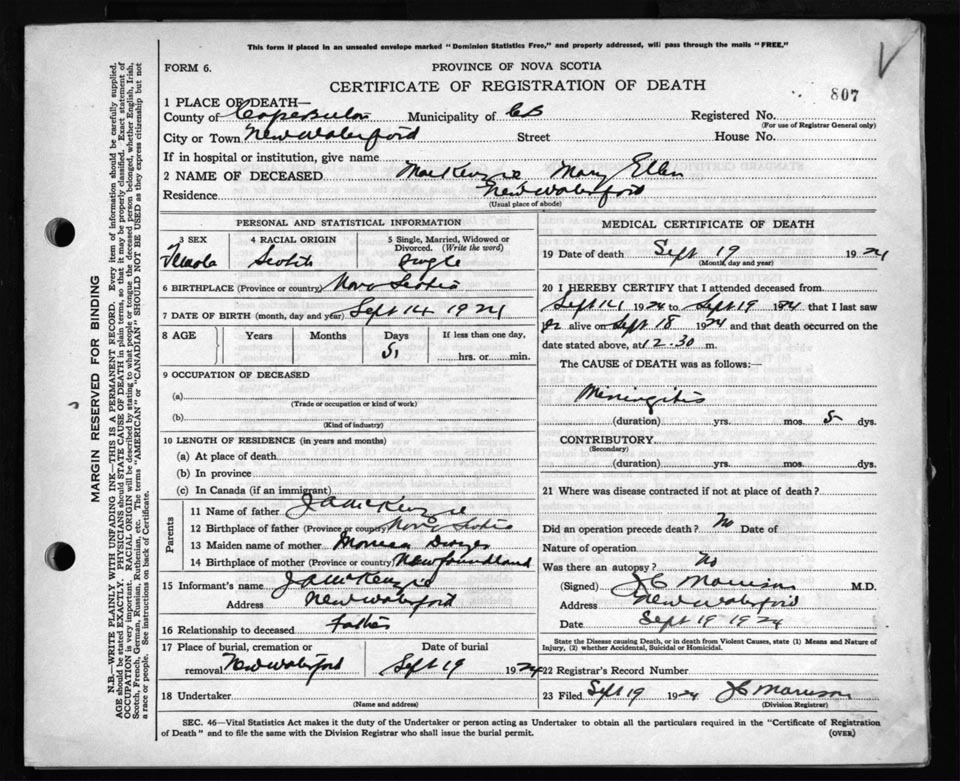 This form if placed in an unsealed envelope marked "Dominion Statistics Free," and properly addressed, will pass through the mails "FREE."
FORM 6.
PROVINCE OF NOVA SCOTIA
CERTIFICATE OF REGISTRATION OF DEATH
807
1 PLACE OF DEATH—
County of Cape Breton Municipality of CB Registered No.
(For use of Registrar General only)
City or Town New Waterford Street House No.
If in hospital or institution, give name
2 NAME OF DECEASED MacKenzie Mary Ellen
Residence New Waterford
(Usual place of abode)
PERSONAL AND STATISTICAL INFORMATION
3 SEX 4 RACIAL ORIGIN 5 Single, Married, Widowed or Divorced. (Write the word)
Female Scotch Single
6 BIRTHPLACE (Province or country) Nova Scotia
7 DATE OF BIRTH (month, day and year) Sept 14 1924
8 AGE Years Months Days If less than one day,
5 hrs. or min.
9 OCCUPATION OF DECEASED
(a)
(Trade or occupation or kind of work)
(b)
(Kind of industry)
10 LENGTH OF RESIDENCE (in years and months)
(a) At place of death
(b) In province
(c) In Canada (if an immigrant)
Parents
11 Name of father J A McKenzie
12 Birthplace of father (Province or country) Nova Scotia
13 Maiden name of mother
14 Birthplace of mother (Province or country) Newfoundland
15 Informant's name J A McKenzie
Address New Waterford
16 Relationship to deceased Father
17 Place of burial, cremation or removal New Waterford
Date of burial
Sept 19 1924
18 Undertaker
(Name and address)
MEDICAL CERTIFICATE OF DEATH
19 Date of death Sept 19 1924
(Month, day and year)
20 I HEREBY CERTIFY that I attended deceased from
Sept 14 1924 to Sept 19 1924 that I last saw
alive on Sept 18 1924 and that death occurred on the
date stated above, at 12.30 m.
The CAUSE of DEATH was as follows:—
Miningitis
(duration) yrs. mos. 5 dys.
CONTRIBUTORY
(Secondary)
(duration) yrs. mos. dys.
21 Where was disease contracted if not at place of death?
Did an operation precede death? No Date of
Nature of operation
Was there an autopsy? No
(Signed) J C Morrison M.D.
Address New Waterford
Date Sept 19 1924
State the Disease causing Death, or in death from Violent Causes, state (1) Means and Nature of
Injury, (2) whether Accidental, Suicidal or Homicidal.
22 Registrar's Record Number
23 Filed Sept 19 1924 J C Morrison
(Division Registrar)
SEC. 46—Vital Statistics Act makes it the duty of the Undertaker or person acting as Undertaker to obtain all the particulars required in the "Certificate of Registration
of Death" and to file the same with the Division Registrar who shall issue the burial permit.
(OVER)
MARGIN RESERVED FOR BINDING
N.B.—WRITE PLAINLY WITH UNFADING INK—THIS IS A PERMANENT RECORD. Every item of information should be carefully supplied.
AGE should be stated EXACTLY. PHYSICIANS should STATE CAUSE OF DEATH in plain terms, so that it may be properly classified. Exact statement of
OCCUPATION is very important. RACIAL ORIGIN will be described by stating to what people or tongue the deceased person belonged, whether English, Irish,
Scotch, French, German, Russian, Ruthenian, etc. The terms "AMERICAN" or "CANADIAN" SHOULD NOT BE USED as they express citizenship but not
a race or people. See instructions on back of Certificate.